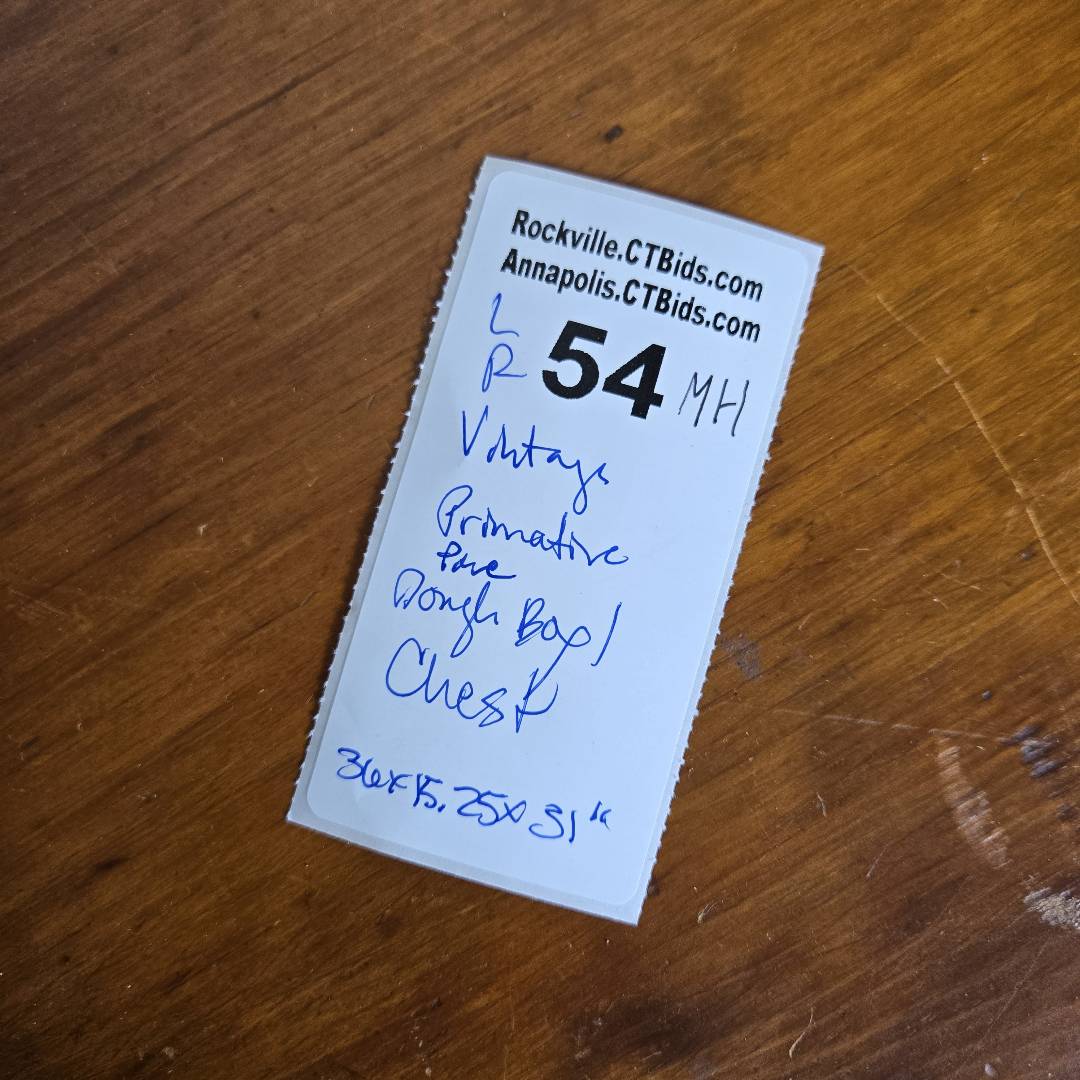 Rockville.CTBids.com
Annapolis.CTBids.com
L
R 54 MH
Vintage
Primative
Pine
Dough Box/
Chest
36x15.25x31"